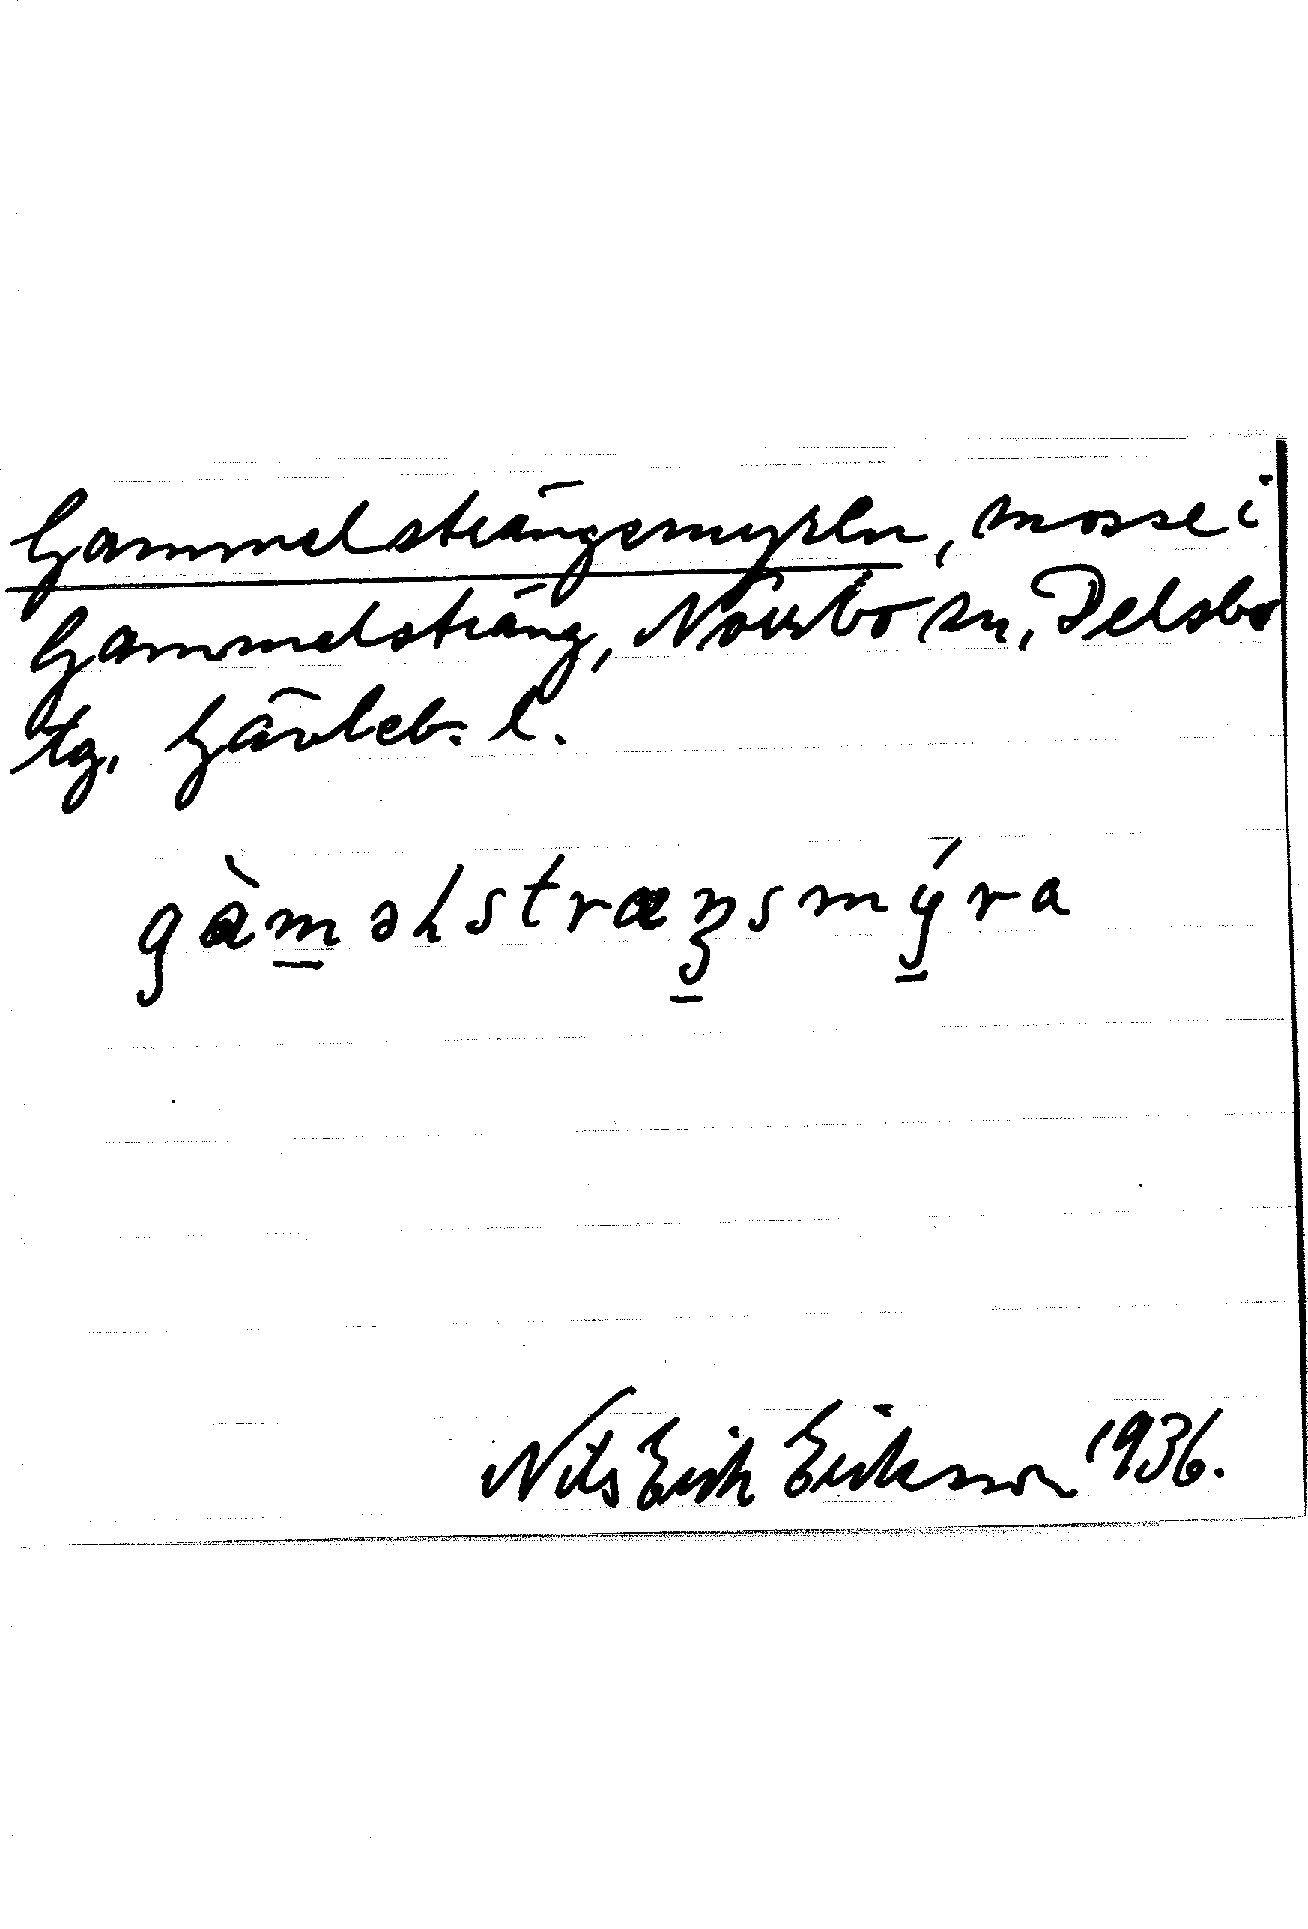 Gammelsträngsmyren, mosse i
Gammelsträng, Norrbo sn, Delsbo
tg, Gävleb. l.
gàm̲əlstræŋ̲smý̲ra
Nils Erik Eriksson 1936.